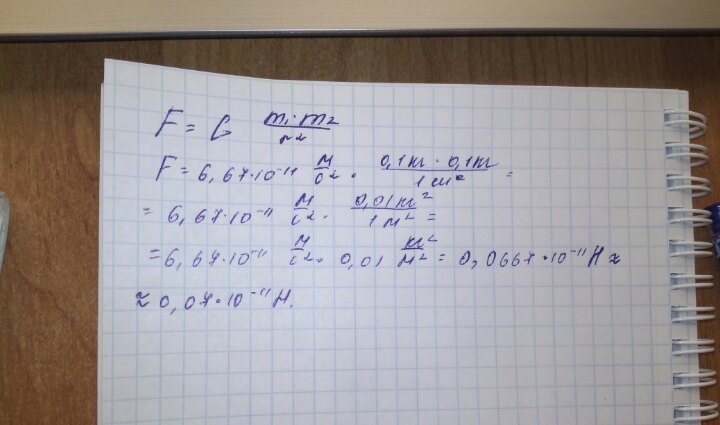 F = G m₁·m₂/r²
F = 6,67·10⁻¹¹ м/с² · 0,1кг · 0,1кг/1м² =
= 6,67·10⁻¹¹ м/с² · 0,01кг²/1м² =
= 6,67·10⁻¹¹ м/с² · 0,01 кг²/м² = 0,0667·10⁻¹¹ Н ≈
≈ 0,07·10⁻¹¹ Н.